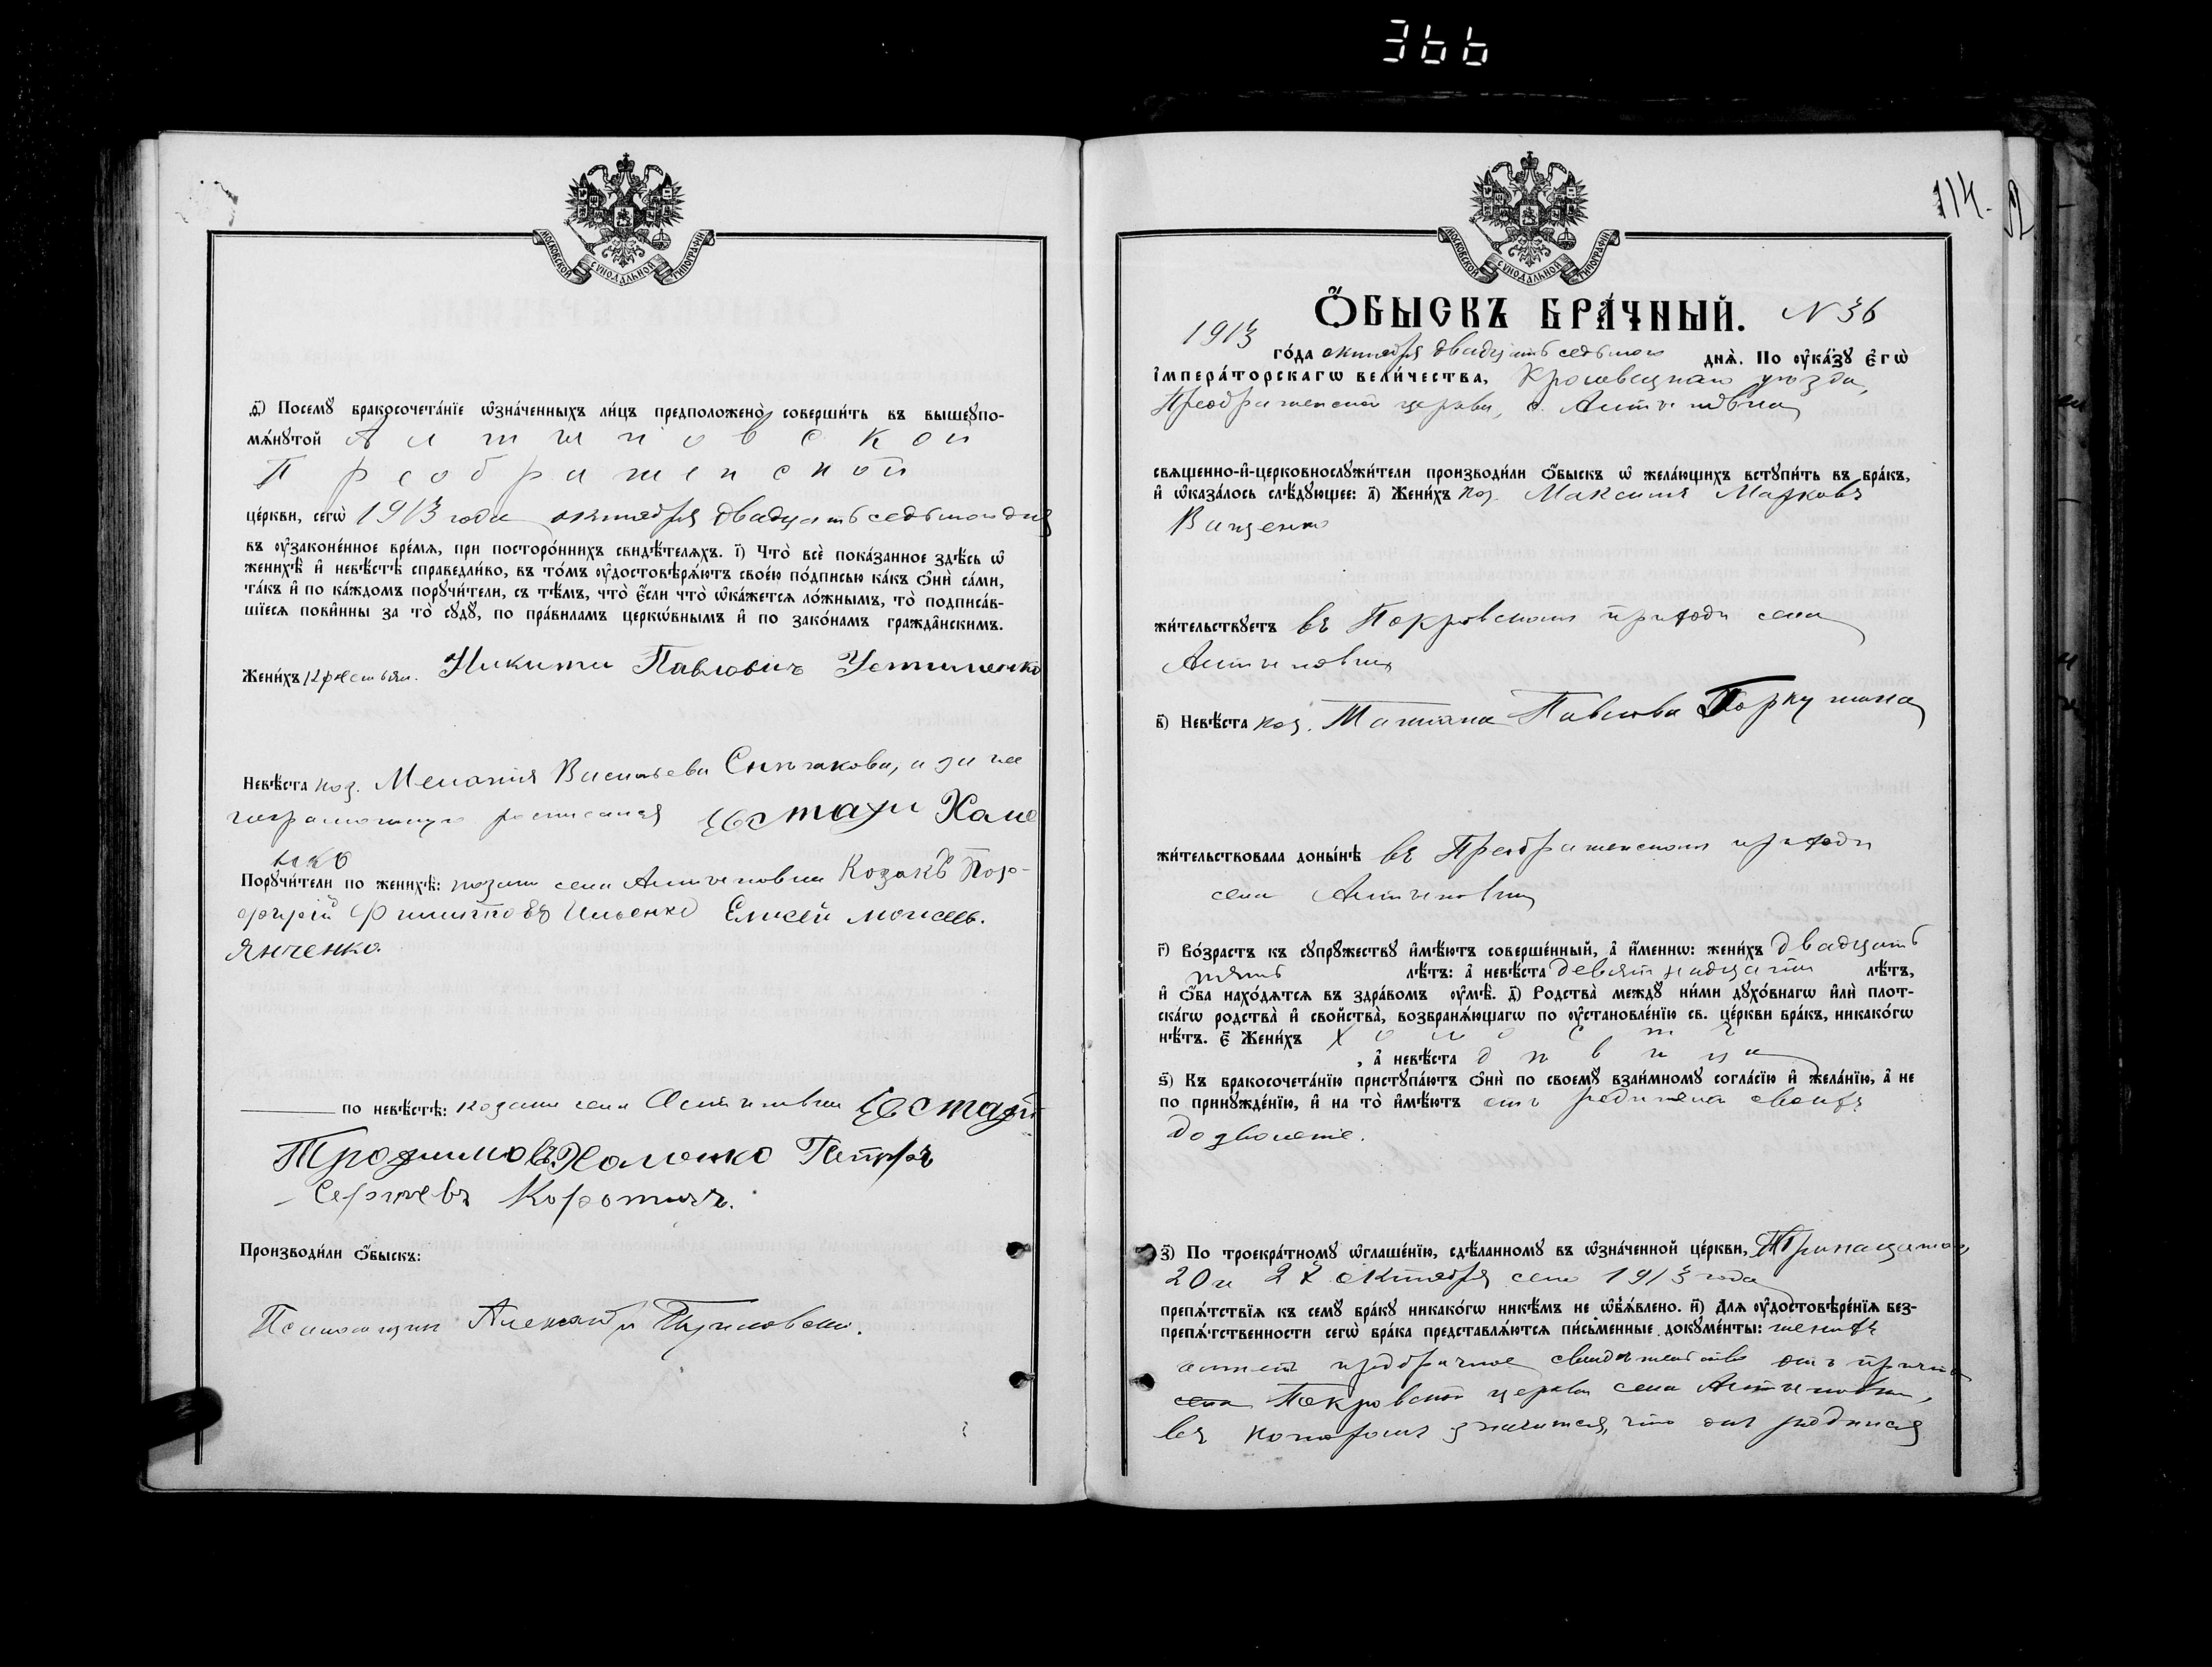 366
МОСКОВСКОЙ СѴНОДАЛЬНОЙ ТИПОГРАФІИ
д҃) Посемꙋ бракосочета́нїе ѡ҆зна́ченныхъ ли́цъ предположено̀ соверши́ть въ вышеꙋпо-
мѧ́нꙋтой Алтыновской
Преображенской
це́ркви, сегѡ̀ 1913 года октября двадцать седьмого дня
въ ᲂу҆законе́нное вре́мѧ, при посторо́ннихъ свидѣ́телѧхъ. і҃) Что̀ всѐ пока́занное здѣ́сь ѡ҆
женихѣ̀ и҆ невѣ́стѣ справедли́во, въ то́мъ ᲂу҆достовѣрѧ́ютъ свое́ю по́дписью ка́къ ѻ҆нѝ са́ми,
та́къ и҆ по ка́ждомъ порꙋчи́тели, съ тѣ́мъ, что̀ є҆́сли что̀ ѡ҆ка́жетсѧ ло́жнымъ, то̀ подписа́в-
шїесѧ пови́нны за то̀ сꙋдꙋ̀, по пра́виламъ церко́внымъ и҆ по зако́намъ гражда́нскимъ.
Жени́хъ крестьян. Никита Павловичъ Устименко
Невѣ́ста коз. Меланія Васильева, а за нее
неграмотную росписался Евстафи Хале
нко
Порꙋчи́тели по женихѣ̀: козаки села Алтыновки Козакъ Пор-
фирій Филиповъ Ильенко Елисей Моисеев.
Янченко.
по невѣ́стѣ: козаки села Алтыновки Евстафи
Трофимовъ Халенко Петръ
Сергѣевъ Короткій.
Производи́ли ѻ҆́быскъ:
Псаломщик Александръ
114.
МОСКОВСКОЙ СѴНОДАЛЬНОЙ ТИПОГРАФІИ
Ѻ҆́БЫСКЪ БРА́ЧНЫЙ. N 36
1913
го́да октября двадцать седьмого днѧ̀. По ᲂу҆ка́зꙋ є҆гѡ̀
і҆мпера́торскагѡ вели́чества, Кролевецкаго уѣзда,
Преображенской церкви, с. Алтыновки
свѧще́нно-и҆-церковнослꙋжи́тели производи́ли ѻ҆́быскъ ѡ҆ жела́ющихъ встꙋпи́ть въ бра́къ,
и҆ ѡ҆каза́лось слѣ́дꙋющее: а҃) Жени́хъ коз. Максимъ Марковъ
Ващенко
жи́тельствꙋетъ въ Покровскомъ приходѣ села
Алтыновки
в҃) Невѣ́ста коз. Татiана Павлова
жи́тельствовала доны́нѣ въ Преображенскомъ приходѣ
села Алтыновки
г҃) Во́зрастъ къ сꙋпрꙋ́жествꙋ и҆мѣ́ютъ соверше́нный, а҆ и҆́меннѡ: жени́хъ двадцать
пять лѣ́тъ: а҆ невѣ́ста девятнадцати лѣ́тъ,
и҆ ѻ҆́ба нахо́дѧтсѧ въ здра́вомъ ᲂу҆мѣ̀. д҃) Родства̀ междꙋ̀ ни́ми дꙋхо́внагѡ и҆лѝ плот-
ска́гѡ родства̀ и҆ свойства̀, возбранѧ́ющагѡ по ᲂу҆становле́нїю св. це́ркви бра́къ, никако́гѡ
нѣ́тъ. є҃) Жени́хъ холостъ
, а҆ невѣ́ста дѣвица
ѕ҃) Къ бракосочета́нїю пристꙋпа́ютъ ѻ҆нѝ по своемꙋ̀ взаи́мномꙋ согла́сїю и҆ жела́нїю, а҆ не
по принꙋжде́нїю, и҆ на то̀ и҆мѣ́ютъ отъ своихъ
дозволеніе.
з҃) По троекра́тномꙋ ѡ҆глаше́нїю, сдѣ́ланномꙋ въ ѡ҆зна́ченной це́ркви, Тринадцатаго,
20 и 27 октября сего 1913 года
препѧ́тствїѧ къ семꙋ̀ бра́кꙋ никако́гѡ никѣ́мъ не ѡ҆б̾ѧ́влено. и҃) Длѧ̀ ᲂу҆достовѣре́нїѧ без-
препѧ́тственности сегѡ̀ бра́ка представлѧ́ютсѧ пи́сьменные докꙋме́нты: женихъ
имѣетъ предбрачное свидѣтельство отъ причта
села Покровской церкви села Алтыновки,
въ которомъ значится, что онъ родился